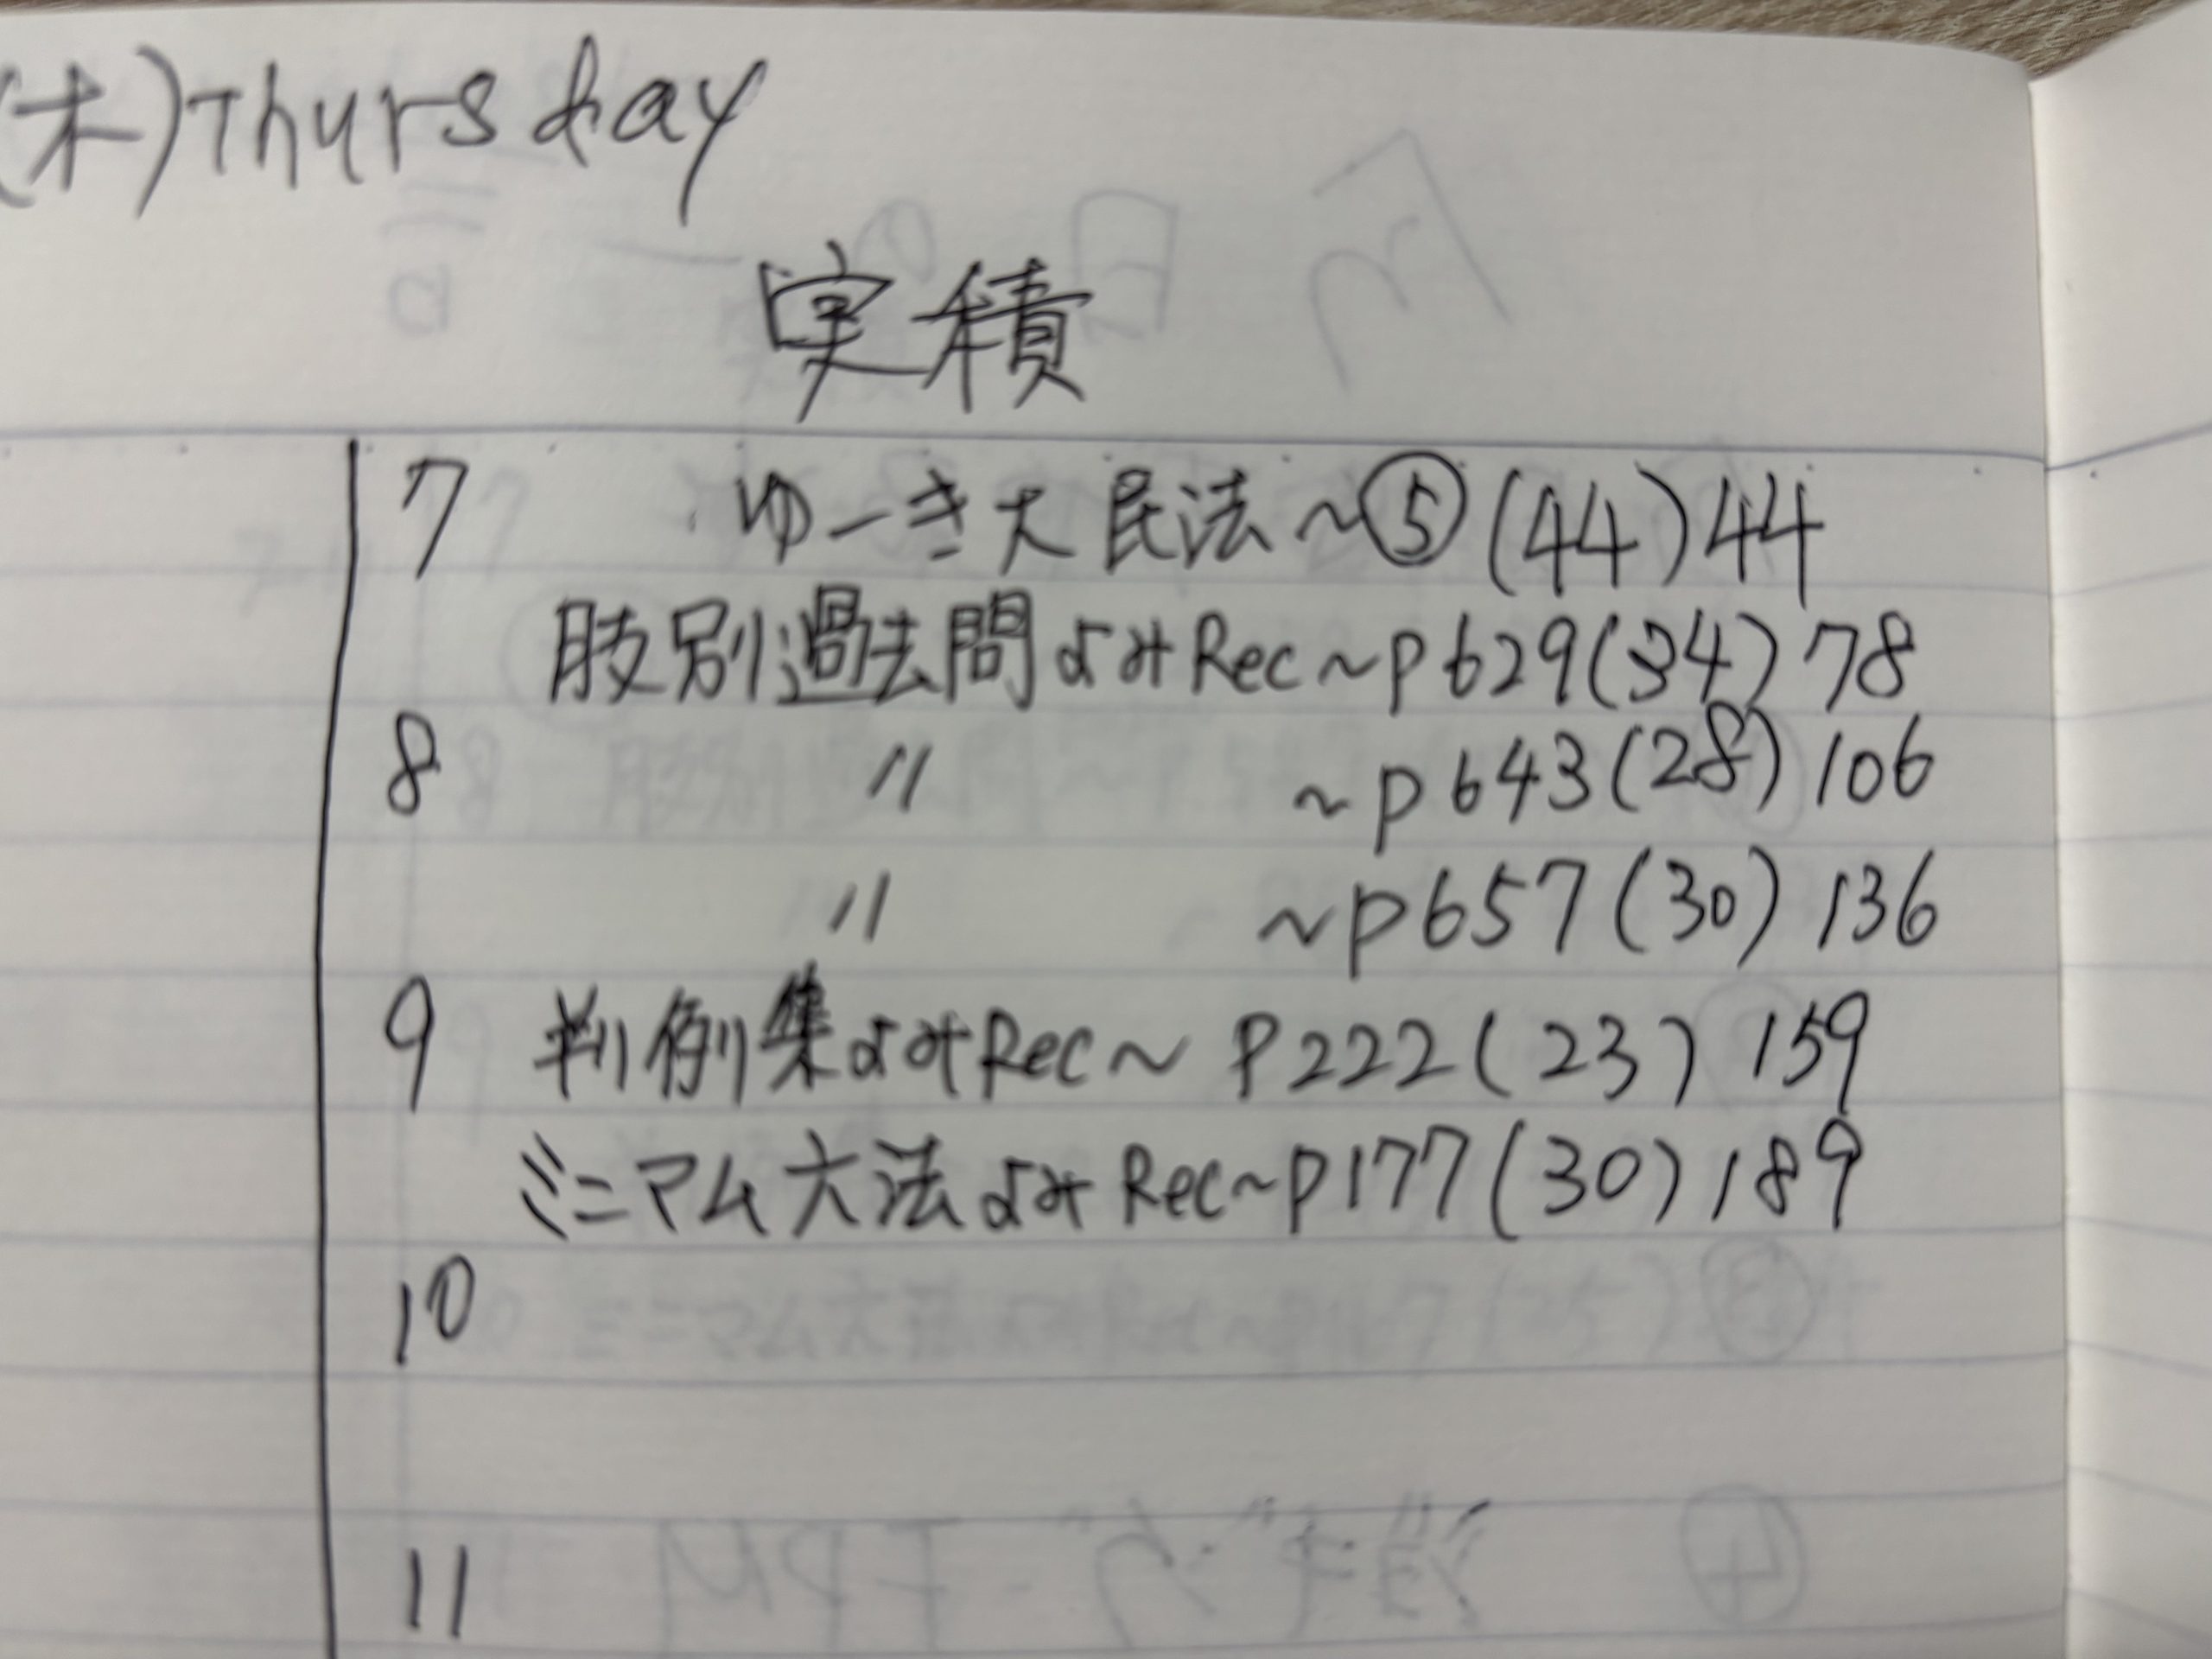 (木)Thursday
実積
7 ゆーき大民法~⑤(44)44
肢別過去問よみRec~p629(34)78
8 〃 ~p643(28)106
〃 ~p657(30)136
9 判例集よみRec~P222(23)159
ミニマム六法よみRec~p177(30)189
10
11